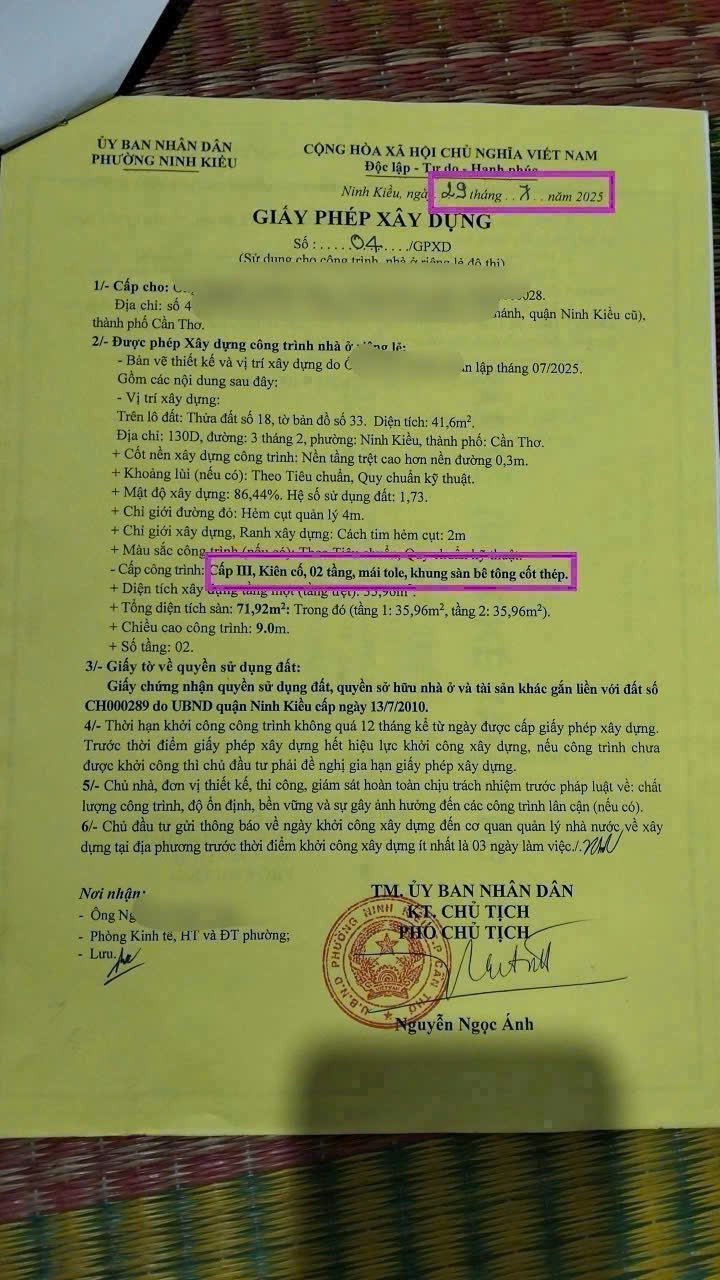 ỦY BAN NHÂN DÂN
PHƯỜNG NINH KIỀU
CỘNG HÒA XÃ HỘI CHỦ NGHĨA VIỆT NAM
Độc lập - Tự do - Hạnh phúc
Ninh Kiều, ngày 29 tháng . . 7 . . năm 2025
GIẤY PHÉP XÂY DỰNG
Số : . . . . . 04 . . . . /GPXD
(Sử dụng cho công trình, nhà ở riêng lẻ đô thị)
1/- Cấp cho:
Địa chỉ: số 4 quận Ninh Kiều cũ),
thành phố Cần Thơ.
2/- Được phép Xây dựng công trình nhà ở riêng lẻ:
- Bản vẽ thiết kế và vị trí xây dựng do lập tháng 07/2025.
Gồm các nội dung sau đây:
- Vị trí xây dựng:
Trên lô đất: Thửa đất số 18, tờ bản đồ số 33. Diện tích: 41,6m².
Địa chỉ: 130D, đường: 3 tháng 2, phường: Ninh Kiều, thành phố: Cần Thơ.
+ Cốt nền xây dựng công trình: Nền tầng trệt cao hơn nền đường 0,3m.
+ Khoảng lùi (nếu có): Theo Tiêu chuẩn, Quy chuẩn kỹ thuật.
+ Mật độ xây dựng: 86,44%. Hệ số sử dụng đất: 1,73.
+ Chỉ giới đường đỏ: Hẻm cụt quản lý 4m.
+ Chỉ giới xây dựng, Ranh xây dựng: Cách tim hẻm cụt: 2m
+ Màu sắc công trình (nếu có): Theo Tiêu chuẩn, Quy chuẩn kỹ thuật
- Cấp công trình: Cấp III, Kiên cố, 02 tầng, mái tole, khung sàn bê tông cốt thép.
+ Diện tích xây dựng tầng một (tầng trệt): 35,96m².
+ Tổng diện tích sàn: 71,92m²: Trong đó (tầng 1: 35,96m², tầng 2: 35,96m²).
+ Chiều cao công trình: 9.0m.
+ Số tầng: 02.
3/- Giấy tờ về quyền sử dụng đất:
Giấy chứng nhận quyền sử dụng đất, quyền sở hữu nhà ở và tài sản khác gắn liền với đất số
CH000289 do UBND quận Ninh Kiều cấp ngày 13/7/2010.
4/- Thời hạn khởi công công trình không quá 12 tháng kể từ ngày được cấp giấy phép xây dựng.
Trước thời điểm giấy phép xây dựng hết hiệu lực khởi công xây dựng, nếu công trình chưa
được khởi công thì chủ đầu tư phải đề nghị gia hạn giấy phép xây dựng.
5/- Chủ nhà, đơn vị thiết kế, thi công, giám sát hoàn toàn chịu trách nhiệm trước pháp luật về: chất
lượng công trình, độ ổn định, bền vững và sự gây ảnh hưởng đến các công trình lân cận (nếu có).
6/- Chủ đầu tư gửi thông báo về ngày khởi công xây dựng đến cơ quan quản lý nhà nước về xây
dựng tại địa phương trước thời điểm khởi công xây dựng ít nhất là 03 ngày làm việc./.
Nơi nhận:
- Ông
- Phòng Kinh tế, HT và ĐT phường;
- Lưu.
TM. ỦY BAN NHÂN DÂN
KT. CHỦ TỊCH
PHÓ CHỦ TỊCH
U.B.N.D PHƯỜNG NINH KIỀU T.P CẦN THƠ
Nguyễn Ngọc Ánh